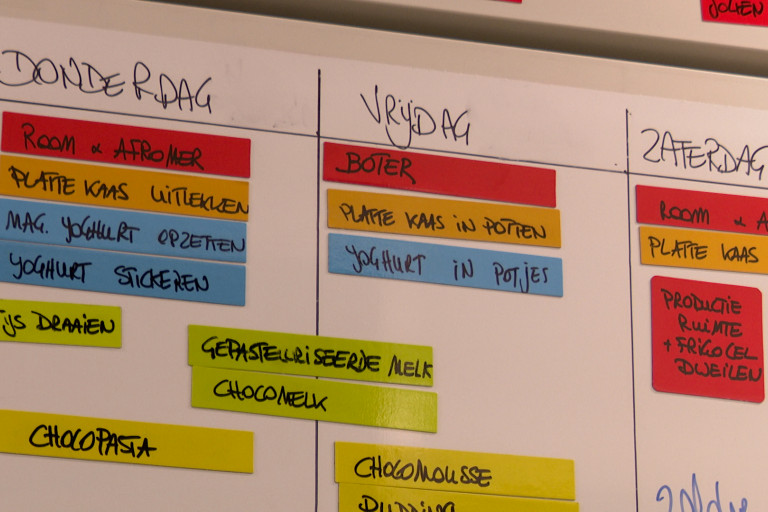 JOLIEN
DONDERDAG
VRIJDAG
ZATERDAG
ROOM & AFROMER
PLATTE KAAS UITLEKKEN
MAG. YOGHURT OPZETTEN
YOGHURT STICKEREN
IJS DRAAIEN
CHOCOPASTA
BOTER
PLATTE KAAS IN POTTEN
YOGHURT IN POTJES
GEPASTEURISEERDE MELK
CHOCOMELK
CHOCOMOUSSE
PUDDING
ROOM & A
PLATTE KAAS
PRODUCTIE
RUIMTE
+ FRIGO CEL
DWEILEN